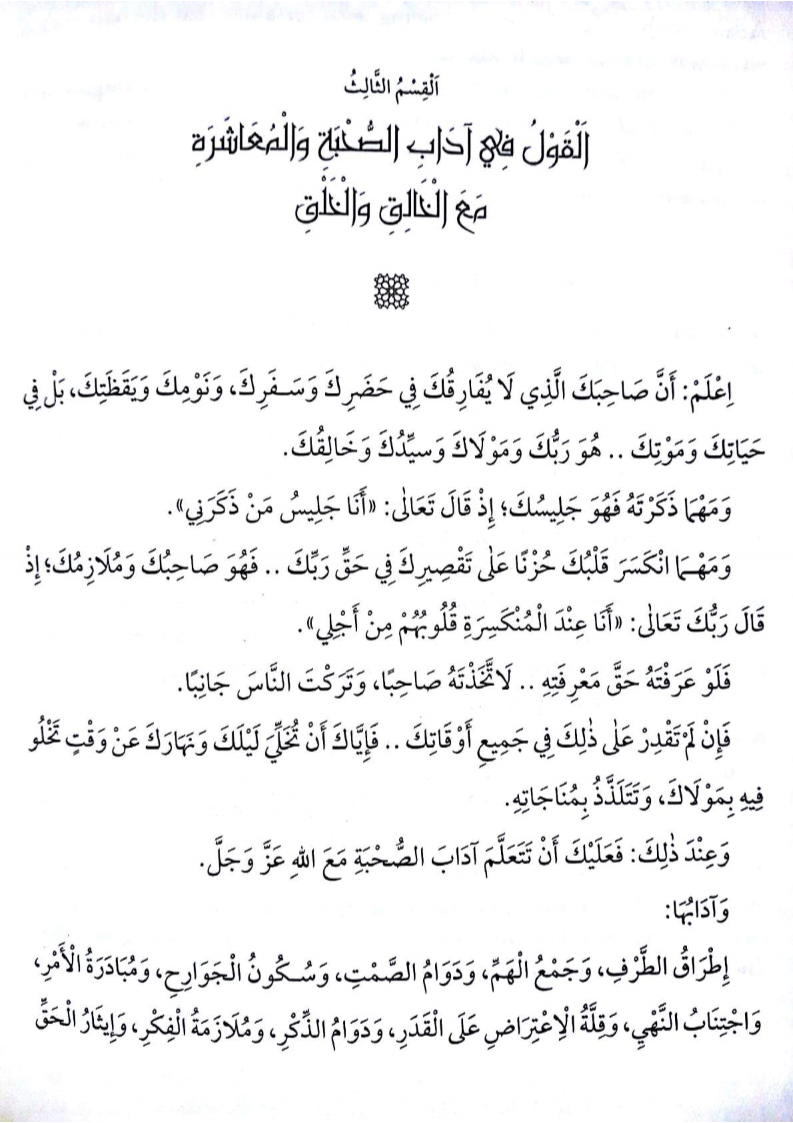 اَلْقِسْمُ الثَّالِثُ
اَلْقَوْلُ فِي آدَابِ الصُّحْبَةِ وَالْمُعَاشَرَةِ
مَعَ الْخَالِقِ وَالْخَلْقِ
اِعْلَمْ: أَنَّ صَاحِبَكَ الَّذِي لَا يُفَارِقُكَ فِي حَضَرِكَ وَسَفَرِكَ، وَنَوْمِكَ وَيَقَظَتِكَ، بَلْ فِي
حَيَاتِكَ وَمَوْتِكَ .. هُوَ رَبُّكَ وَمَوْلَاكَ وَسيِّدُكَ وَخَالِقُكَ.
وَمَهْمَا ذَكَرْتَهُ فَهُوَ جَلِيسُكَ؛ إِذْ قَالَ تَعَالٰى: «أَنَا جَلِيسُ مَنْ ذَكَرَنِي».
وَمَهْمَا انْكَسَرَ قَلْبُكَ حُزْنًا عَلٰى تَقْصِيرِكَ فِي حَقِّ رَبِّكَ .. فَهُوَ صَاحِبُكَ وَمُلَازِمُكَ؛ إِذْ
قَالَ رَبُّكَ تَعَالٰى: «أَنَا عِنْدَ الْمُنْكَسِرَةِ قُلُوبُهُمْ مِنْ أَجْلِي».
فَلَوْ عَرَفْتَهُ حَقَّ مَعْرِفَتِهِ .. لَاتَّخَذْتَهُ صَاحِبًا، وَتَرَكْتَ النَّاسَ جَانِبًا.
فَإِنْ لَمْ تَقْدِرْ عَلٰى ذٰلِكَ فِي جَمِيعِ أَوْقَاتِكَ .. فَإِيَّاكَ أَنْ تُخَلِّيَ لَيْلَكَ وَنَهَارَكَ عَنْ وَقْتٍ تَخْلُو
فِيهِ بِمَوْلَاكَ، وَتَتَلَذَّذُ بِمُنَاجَاتِهِ.
وَعِنْدَ ذٰلِكَ: فَعَلَيْكَ أَنْ تَتَعَلَّمَ آدَابَ الصُّحْبَةِ مَعَ اللهِ عَزَّ وَجَلَّ.
وَآدَابُهَا:
إِطْرَاقُ الطَّرْفِ، وَجَمْعُ الْهَمِّ، وَدَوَامُ الصَّمْتِ، وَسُكُونُ الْجَوَارِحِ، وَمُبَادَرَةُ الْأَمْرِ،
وَاجْتِنَابُ النَّهْيِ، وَقِلَّةُ الْاِعْتِرَاضِ عَلَى الْقَدَرِ، وَدَوَامُ الذِّكْرِ، وَمُلَازَمَةُ الْفِكْرِ، وَإِيثَارُ الْحَقِّ